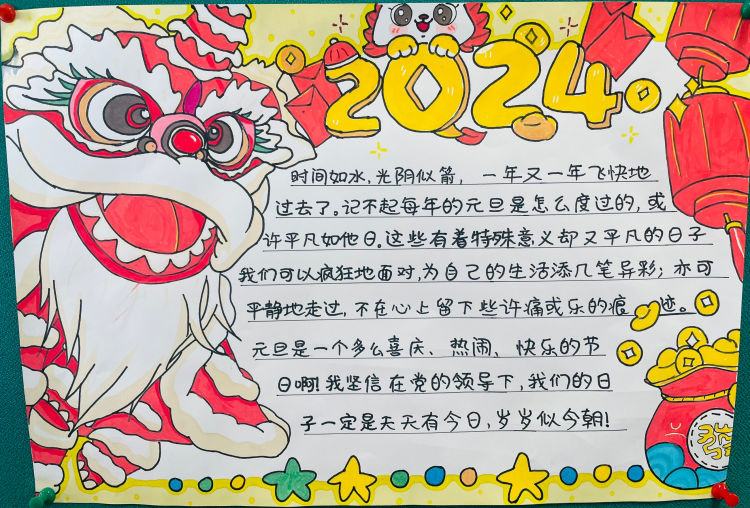 2024
时间如水,光阴似箭,一年又一年飞快地
过去了。记不起每年的元旦是怎么度过的,或
许平凡如他日。这些有着特殊意义却又平凡的日子
我们可以疯狂地面对,为自己的生活添几笔异彩;亦可
平静地走过,不在心上留下些许痛或乐的痕迹。
元旦是一个多么喜庆、热闹、快乐的节
日啊!我坚信在党的领导下,我们的日
子一定是天天有今日,岁岁似今朝!